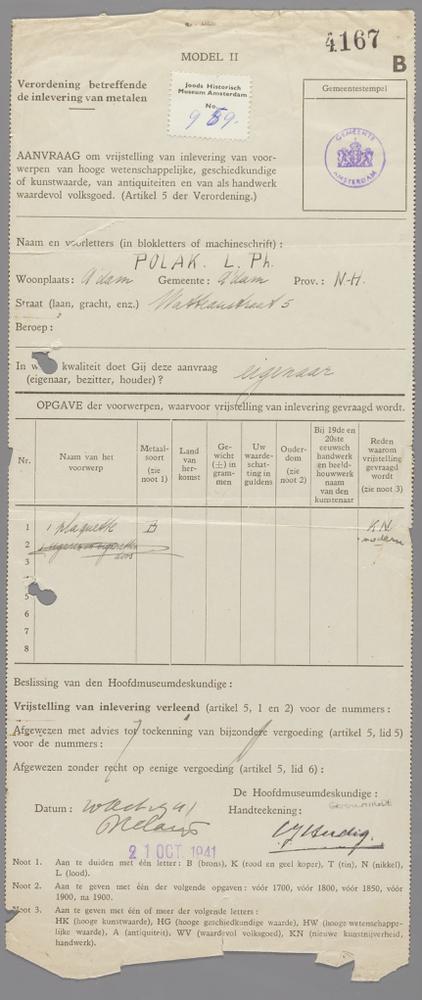 MODEL II
4167
B
Verordening betreffende
de inlevering van metalen
Joods Historisch
Museum Amsterdam
No.
Gemeentestempel
GEMEENTE
AMSTERDAM
AANVRAAG om vrijstelling van inlevering van voor-
werpen van hooge wetenschappelijke, geschiedkundige
of kunstwaarde, van antiquiteiten en van als handwerk
waardevol volksgoed. (Artikel 5 der Verordening.)
Naam en voorletters (in blokletters of machineschrift) :
POLAK. L. Ph.
Woonplaats : A'dam Gemeente : A'dam Prov. : N-H.
Straat (laan, gracht, enz.) Watteaustraat 5
Beroep :
In kwaliteit doet Gij deze aanvraag
(eigenaar, bezitter, houder) ? eigenaar
OPGAVE der voorwerpen, waarvoor vrijstelling van inlevering gevraagd wordt.
Nr.
Naam van het
voorwerp
Metaal-
soort
(zie
noot 1)
Land
van
her-
komst
Ge-
wicht
(±) in
gram-
men
Uw
waarde-
schat-
ting in
guldens
Ouder-
dom
(zie
noot 2)
Bij 19de en
20ste
eeuwsch
handwerk
en beeld-
houwwerk
naam
van den
kunstenaar
Reden
waarom
vrijstelling
gevraagd
wordt
(zie noot 3)
1 1 plaquette B KN
2 modern
3
4
5
6
7
8
Beslissing van den Hoofdmuseumdeskundige :
Vrijstelling van inlevering verleend (artikel 5, 1 en 2) voor de nummers :
Afgewezen met advies tot toekenning van bijzondere vergoeding (artikel 5, lid 5)
voor de nummers :
Afgewezen zonder recht op eenige vergoeding (artikel 5, lid 6) :
De Hoofdmuseumdeskundige :
Datum : Handteekening :
21 OCT. 1941
Noot 1. Aan te duiden met één letter : B (brons), K (rood en geel koper), T (tin), N (nikkel),
L (lood).
Noot 2. Aan te geven met één der volgende opgaven : vóór 1700, vóór 1800, vóór 1850, vóór
1900, na 1900.
Noot 3. Aan te geven met één of meer der volgende letters :
HK (hooge kunstwaarde), HG (hooge geschiedkundige waarde), HW (hooge wetenschappe-
lijke waarde), A (antiquiteit), WV (waardevol volksgoed), KN (nieuwe kunstnijverheid,
handwerk).